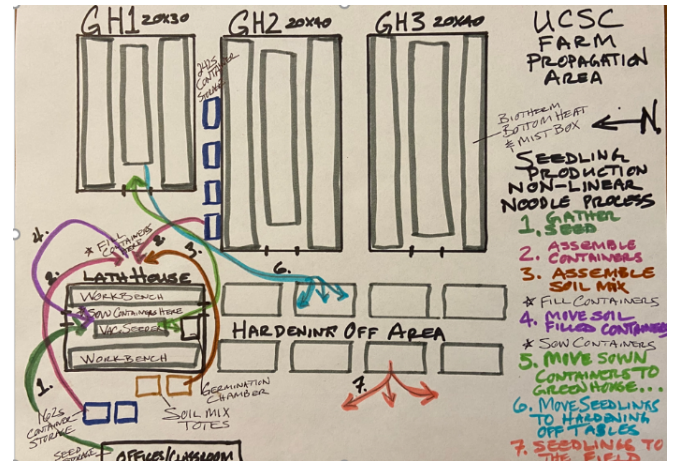 GH1 20x30
GH2 20x40
GH3 20x40
UCSC
FARM
PROPAGATION
AREA
242s
CONTAINER
STORAGE
BIOTHERM
BOTTOM HEAT
& MIST BOX
N.
SEEDLING
PRODUCTION
NON-LINEAR
NOODLE PROCESS
1. GATHER
SEED
2. ASSEMBLE
CONTAINERS
3. ASSEMBLE
SOIL MIX
* FILL CONTAINERS
4. MOVE SOIL
FILLED CONTAINERS
* SOW CONTAINERS
5. MOVE SOWN
CONTAINERS TO
GREENHOUSE...
6. MOVE SEEDLINGS
TO HARDENING
OFF TABLES
7. SEEDLINGS TO
THE FIELD
4.
* FILL
CONTAINERS
HERE
2.
3.
2.
LATH HOUSE
WORKBENCH
* SOW CONTAINERS HERE
VAC SEEDER
WORKBENCH
6.
HARDENING OFF AREA
7.
1.
GERMINATION
CHAMBER
SOIL MIX
TOTES
162s
CONTAINER
STORAGE
SEED
STORAGE
OFFICES/CLASSROOM